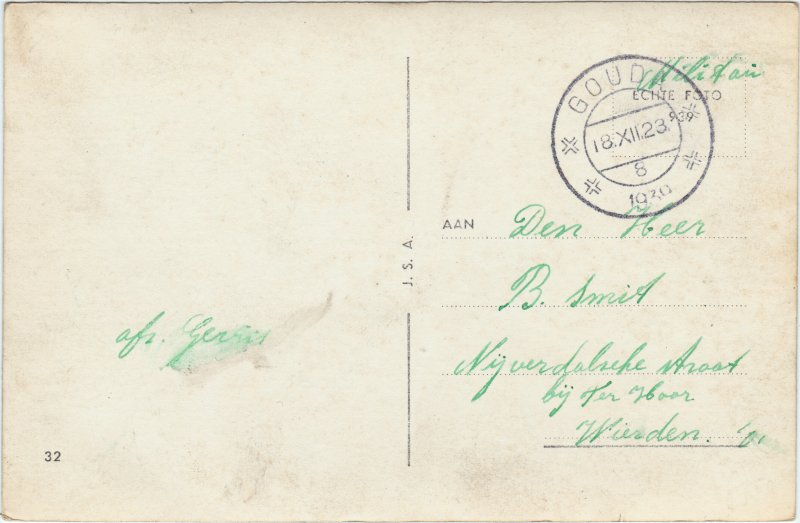 Militair
GOUDA
ECHTE FOTO
939
18.XII.23.
8
1939
AAN Den Heer
J. S. A.
B. Smit
afz. Gerrit
Nijverdalsche straat
bij Ter Hoor
Wierden.
32